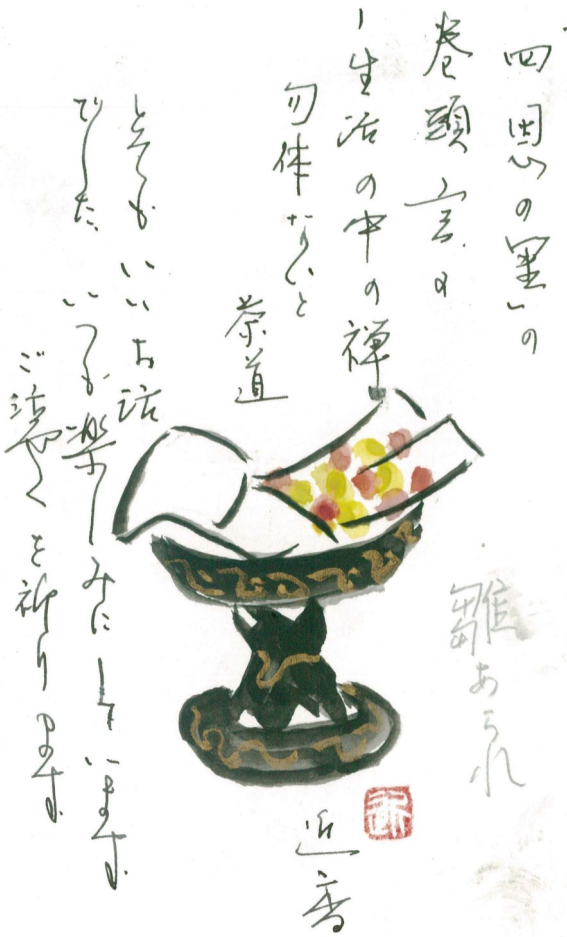 四恩の里」の
巻頭言の
「生活の中の禅
勿体ないと
茶道
とても いいお話
でした いつも楽しみにしています
ご活やくを祈ります
雛あられ
近香